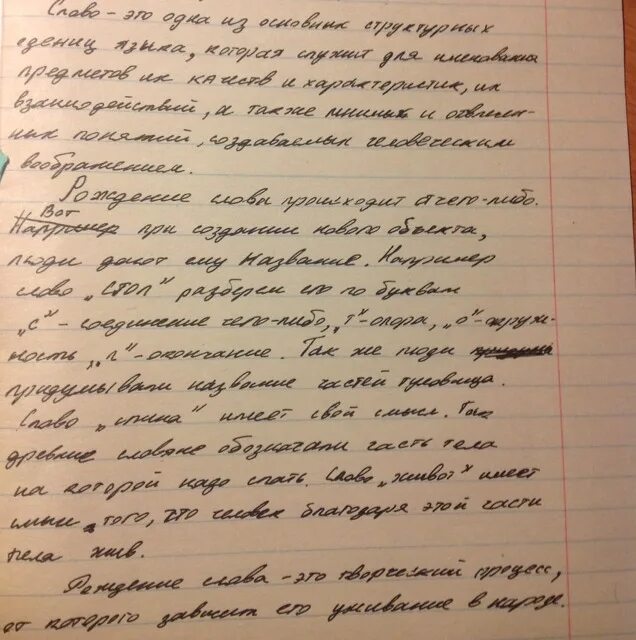 Слово - это одна из основных структурных
едениц языка, которая служит для именования
предметов их качеств и характеристик, их
взаимодействий, а также мнимых и отвлечен-
ных понятий, создаваемых человеческим
воображением.
Рождение слова происходит от чего-либо.
Вот
Например при создании нового объекта,
люди дают ему название. Например
слово „стол" разберем его по буквам
„с" - соединение чего-либо, „т"- опора, „о"- окруж-
ность, „л"- окончание. Так же люди
придумывали название частей туловища.
Слово „спина" имеет свой смысл. Так
древние словяне обозначали часть тела
на которой надо спать. Слово „живот" имеет
смысл того, что человек благодаря этой части
тела жив.
Рождение слова - это творческий процесс,
от которого зависит его уживание в народе.